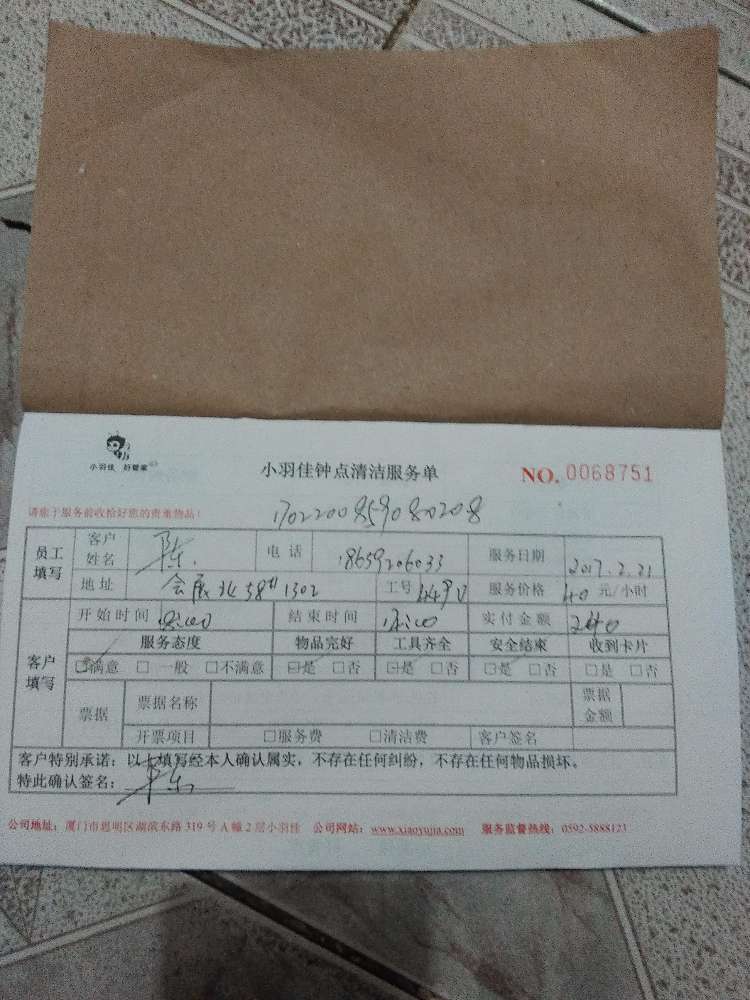 小羽佳 好管家
小羽佳钟点清洁服务单 NO. 0068751
请您于服务前收拾好您的贵重物品!
员工填写 客户姓名 陈 电话 18659206033 服务日期 2017.2.21
地址 会展北 1302 工号 服务价格 40 元/小时
客户填写 开始时间 结束时间 实付金额 240
服务态度 物品完好 工具齐全 安全结束 收到卡片
☑满意 □一般 □不满意 ☑是 □否 ☑是 □否 ☑是 □否 □是 □否
票据 票据名称 票据金额
开票项目 □服务费 □清洁费 客户签名
客户特别承诺:以上填写经本人确认属实,不存在任何纠纷,不存在任何物品损坏。
特此确认签名:
公司地址:厦门市思明区湖滨东路 319 号 A 幢 2 层小羽佳 公司网站:www.xiaoyujia.com 服务监督热线:0592-5888123